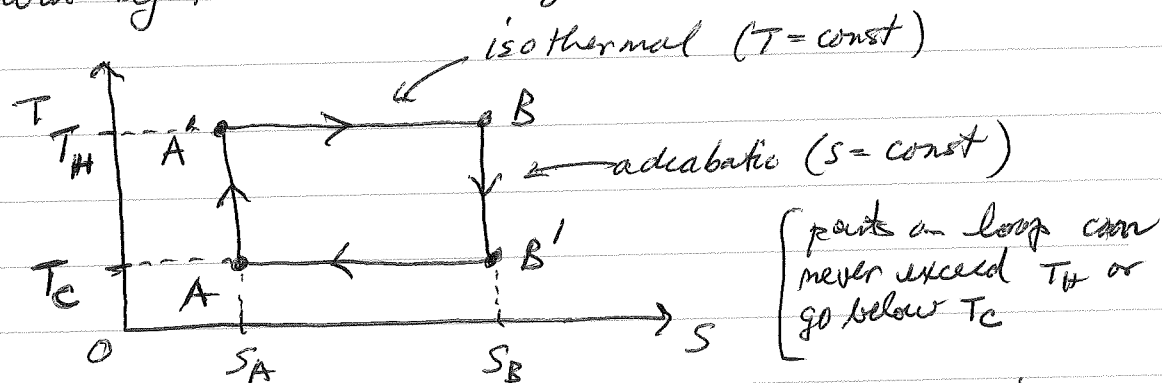 isothermal (T = const)
T
T_H
A'
B
adiabatic (S = const)
T_C
A
B'
points on loop can
never exceed T_H or
go below T_C
0
S_A
S_B
S